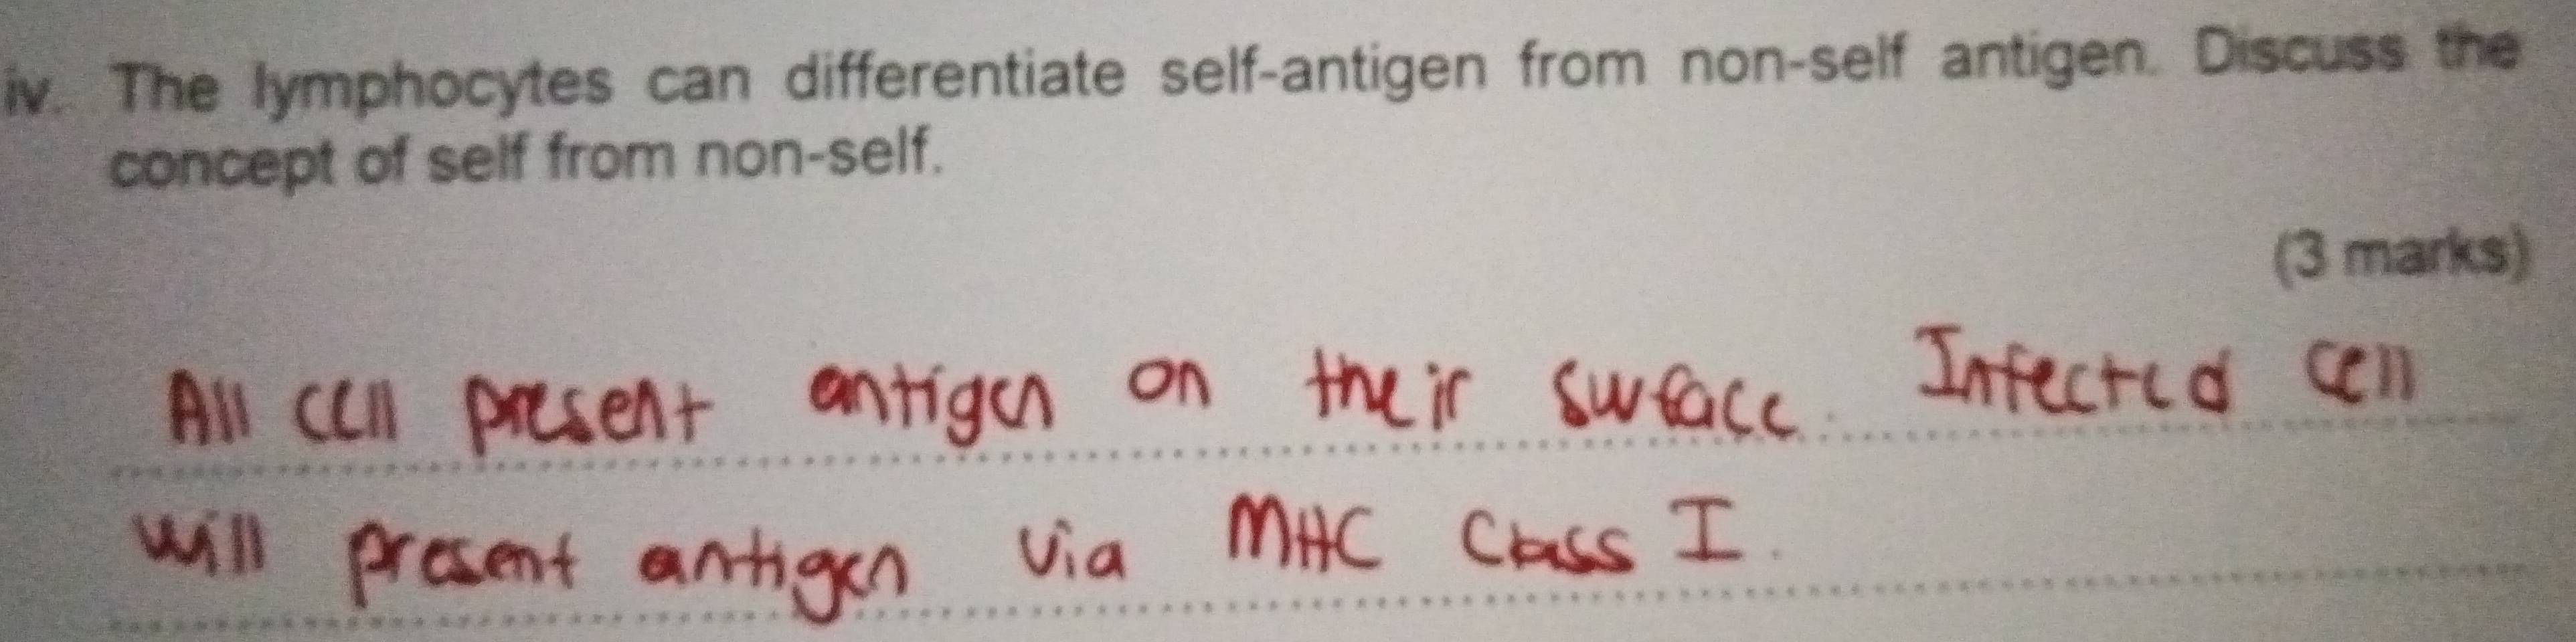 iv. The lymphocytes can differentiate self-antigen from non-self antigen. Discuss the
concept of self from non-self.
(3 marks)
All cell present antigen on their surface. Infected cell
will present antigen via MHC Class I.